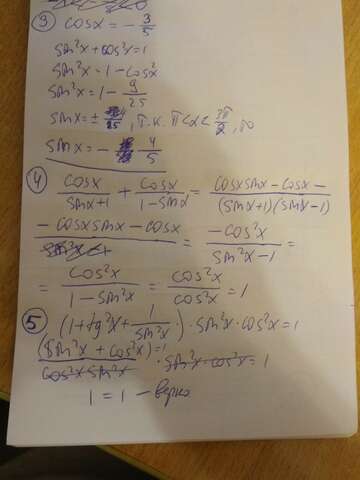 ③ cosx = - 3/5
sin²x + cos²x = 1
sin²x = 1 - cos²
sin²x = 1 - 9/25
sinx = ± /25, т.к. π < x < 3π/2, то
sinx = - 4/5
④ cosx/(sinx+1) + cosx/(1-sinx) = (cosxsinx - cosx -)/((sinx+1)(sinx-1))
- cosxsinx - cosx = -cos²x/(sin²x-1) =
= cos²x/(1-sin²x) = cos²x/cos²x = 1
5 (1+tg²x + 1/sin²x) · sin²x · cos²x = 1
(sin²x + cos²x)=1/(cos²x sin²x) · sin²x · cos²x = 1
1 = 1 - верно